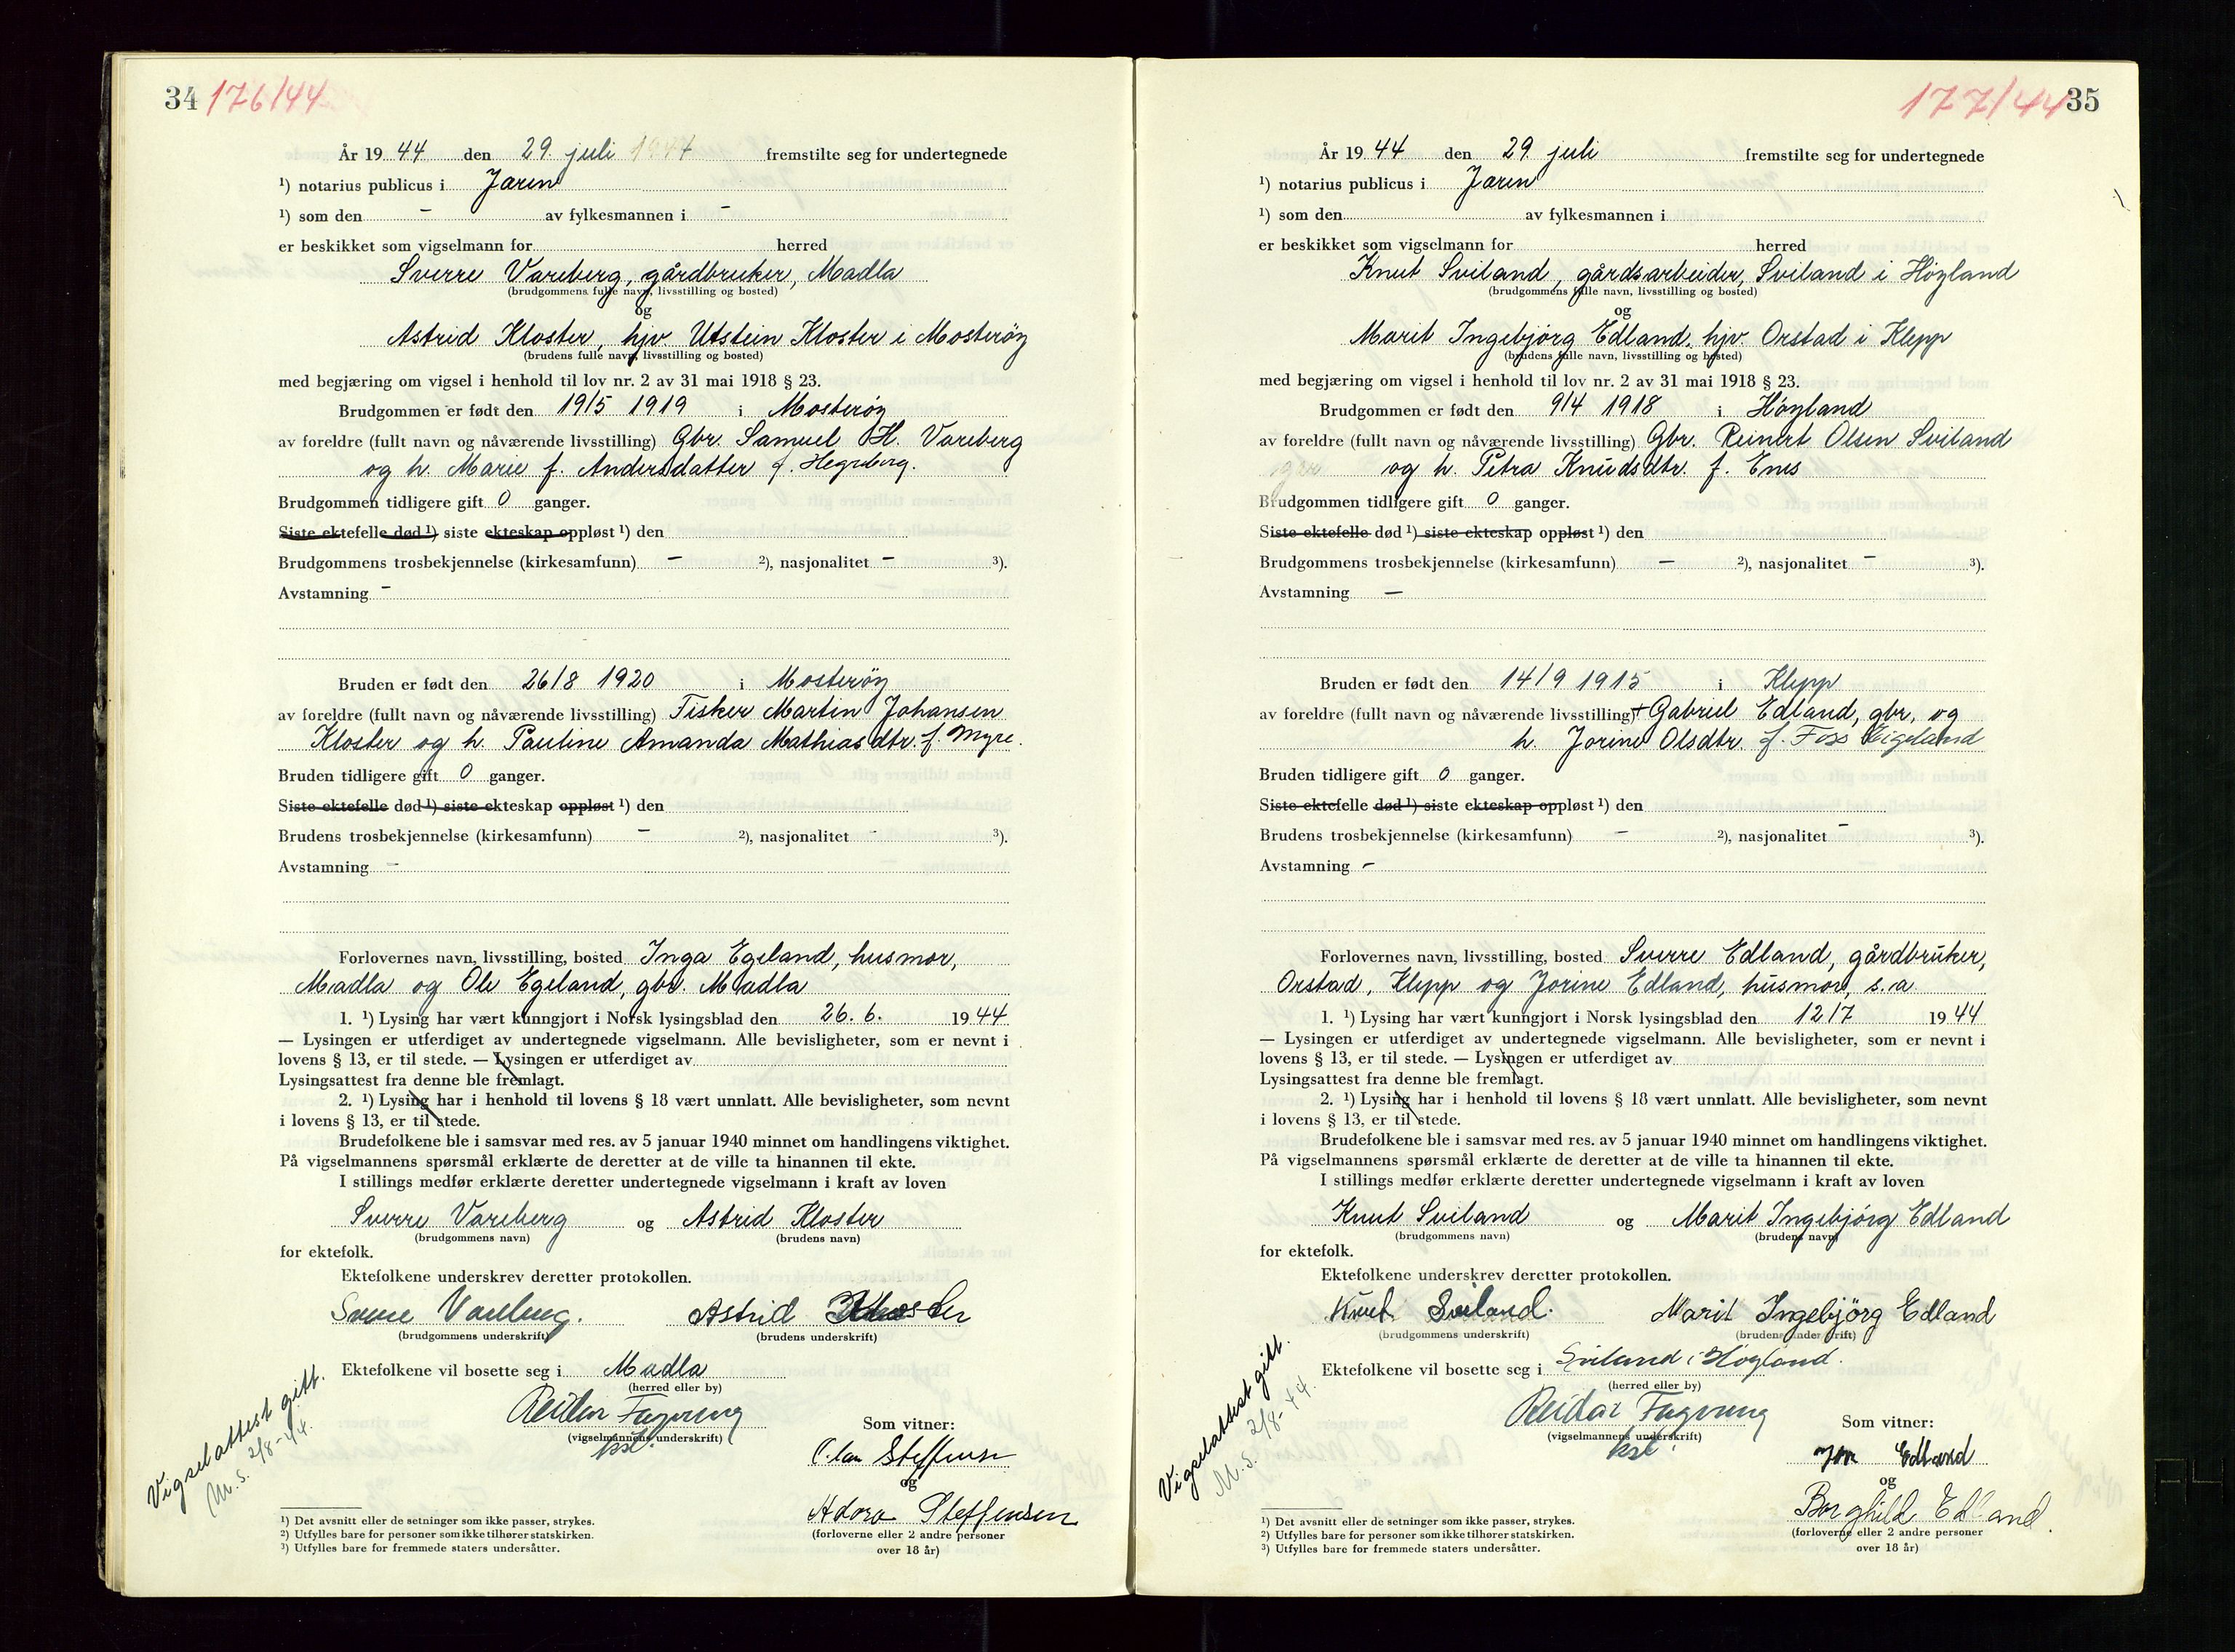 34 176/44
År 19 44 den 29. juli 1944 fremstilte seg for undertegnede
¹) notarius publicus i Jæren
¹) som den - av fylkesmannen i -
er beskikket som vigselmann for herred
Sverre Vareberg, gårdbruker, Madla
(brudgommens fulle navn, livsstilling og bosted)
og
Astrid Kloster, hjv Utstein Kloster i Mosterøy
(brudens fulle navn, livsstilling og bosted)
med begjæring om vigsel i henhold til lov nr. 2 av 31 mai 1918 § 23.
Brudgommen er født den 19/5 1919 i Mosterøy
av foreldre (fullt navn og nåværende livsstilling) Gbr. Samuel H. Vareberg
og h. Marie f. Andersdatter f. Hegreberg.
Brudgommen tidligere gift 0 ganger.
Siste ektefelle død ¹) siste ekteskap oppløst ¹) den
Brudgommens trosbekjennelse (kirkesamfunn) – ²), nasjonalitet – ³).
Avstamning -
Bruden er født den 26/8 1920 i Mosterøy
av foreldre (fullt navn og nåværende livsstilling) Fisker Martin Johansen
Kloster og h. Pauline Amanda Mathiasdtr. f. Myre.
Bruden tidligere gift 0 ganger.
Siste ektefelle død ¹) siste ekteskap oppløst ¹) den
Brudens trosbekjennelse (kirkesamfunn) – ²), nasjonalitet - ³).
Avstamning -
Forlovernes navn, livsstilling, bosted Inga Egeland, husmor,
Madla og Ole Egeland, gbr. Madla
1. ¹) Lysing har vært kunngjort i Norsk lysingsblad den 26. 6. 19 44
— Lysingen er utferdiget av undertegnede vigselmann. Alle bevisligheter, som er nevnt i
lovens § 13, er til stede. — Lysingen er utferdiget av
Lysingsattest fra denne ble fremlagt.
2. ¹) Lysing har i henhold til lovens § 18 vært unnlatt. Alle bevisligheter, som nevnt
i lovens § 13, er til stede.
Brudefolkene ble i samsvar med res. av 5 januar 1940 minnet om handlingens viktighet.
På vigselmannens spørsmål erklærte de deretter at de ville ta hinannen til ekte.
I stillings medfør erklærte deretter undertegnede vigselmann i kraft av loven
Sverre Vareberg og Astrid Kloster
(brudgommens navn) (brudens navn)
for ektefolk.
Ektefolkene underskrev deretter protokollen.
Sverre Vareberg. Astrid Kloster
(brudgommens underskrift) (brudens underskrift)
Ektefolkene vil bosette seg i Madla
(herred eller by)
Reidar Fagerung
(vigselmannens underskrift)
kst.
Som vitner:
Olav Steffensen
og
Adora Steffensen
(forloverne eller 2 andre personer
over 18 år)
Vigselattest gitt.
M. S. 2/8-44.
¹) Det avsnitt eller de setninger som ikke passer, strykes.
²) Utfylles bare for personer som ikke tilhører statskirken.
³) Utfylles bare for fremmede staters undersåtter.
177/44 35
År 19 44 den 29. juli fremstilte seg for undertegnede
¹) notarius publicus i Jæren
¹) som den av fylkesmannen i
er beskikket som vigselmann for herred
Knut Sviland, gårdsarbeider, Sviland i Høyland
(brudgommens fulle navn, livsstilling og bosted)
og
Marit Ingebjørg Edland, hjv. Orstad i Klepp
(brudens fulle navn, livsstilling og bosted)
med begjæring om vigsel i henhold til lov nr. 2 av 31 mai 1918 § 23.
Brudgommen er født den 9/4 1918 i Høyland
av foreldre (fullt navn og nåværende livsstilling) Gbr. Reinert Olsen Sviland
og h. Petra Knudsdtr. f. Enes
Brudgommen tidligere gift 0 ganger.
Siste ektefelle død ¹) siste ekteskap oppløst ¹) den
Brudgommens trosbekjennelse (kirkesamfunn) – ²), nasjonalitet – ³).
Avstamning –
Bruden er født den 14/9 1915 i Klepp
av foreldre (fullt navn og nåværende livsstilling) + Gabriel Edland, gbr, og
h. Jorine Olsdtr. f. Foss Eigeland
Bruden tidligere gift 0 ganger.
Siste ektefelle død ¹) siste ekteskap oppløst ¹) den
Brudens trosbekjennelse (kirkesamfunn) – ²), nasjonalitet – ³).
Avstamning -
Forlovernes navn, livsstilling, bosted Sverre Edland, gårdbruker,
Orstad, Klepp og Jorine Edland, husmor, s.a
1. ¹) Lysing har vært kunngjort i Norsk lysingsblad den 12/7 19 44
— Lysingen er utferdiget av undertegnede vigselmann. Alle bevisligheter, som er nevnt i
lovens § 13, er til stede. — Lysingen er utferdiget av
Lysingsattest fra denne ble fremlagt.
2. ¹) Lysing har i henhold til lovens § 18 vært unnlatt. Alle bevisligheter, som nevnt
i lovens § 13, er til stede.
Brudefolkene ble i samsvar med res. av 5 januar 1940 minnet om handlingens viktighet.
På vigselmannens spørsmål erklærte de deretter at de ville ta hinannen til ekte.
I stillings medfør erklærte deretter undertegnede vigselmann i kraft av loven
Knut Sviland og Marit Ingebjørg Edland
(brudgommens navn) (brudens navn)
for ektefolk.
Ektefolkene underskrev deretter protokollen.
Knut Sviland. Marit Ingebjörg Edland
(brudgommens underskrift) (brudens underskrift)
Ektefolkene vil bosette seg i Sviland i Høyland.
(herred eller by)
Reidar Fagerung
(vigselmannens underskrift)
kst.
Som vitner:
Jon Edland
og
Borghild Edland.
(forloverne eller 2 andre personer
over 18 år)
Vigselattest gitt.
M. S. 2/8-44.
¹) Det avsnitt eller de setninger som ikke passer, strykes.
²) Utfylles bare for personer som ikke tilhører statskirken.
³) Utfylles bare for fremmede staters undersåtter.